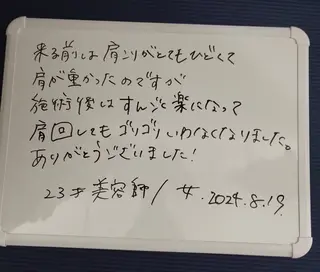 来る前は肩こりがとてもひどくて
肩が重かったのですが
施術後はすんごく楽になって
肩回してもゴリゴリいわなくなりました。
ありがとうございました!
23才美容師/女.2024.8.19.